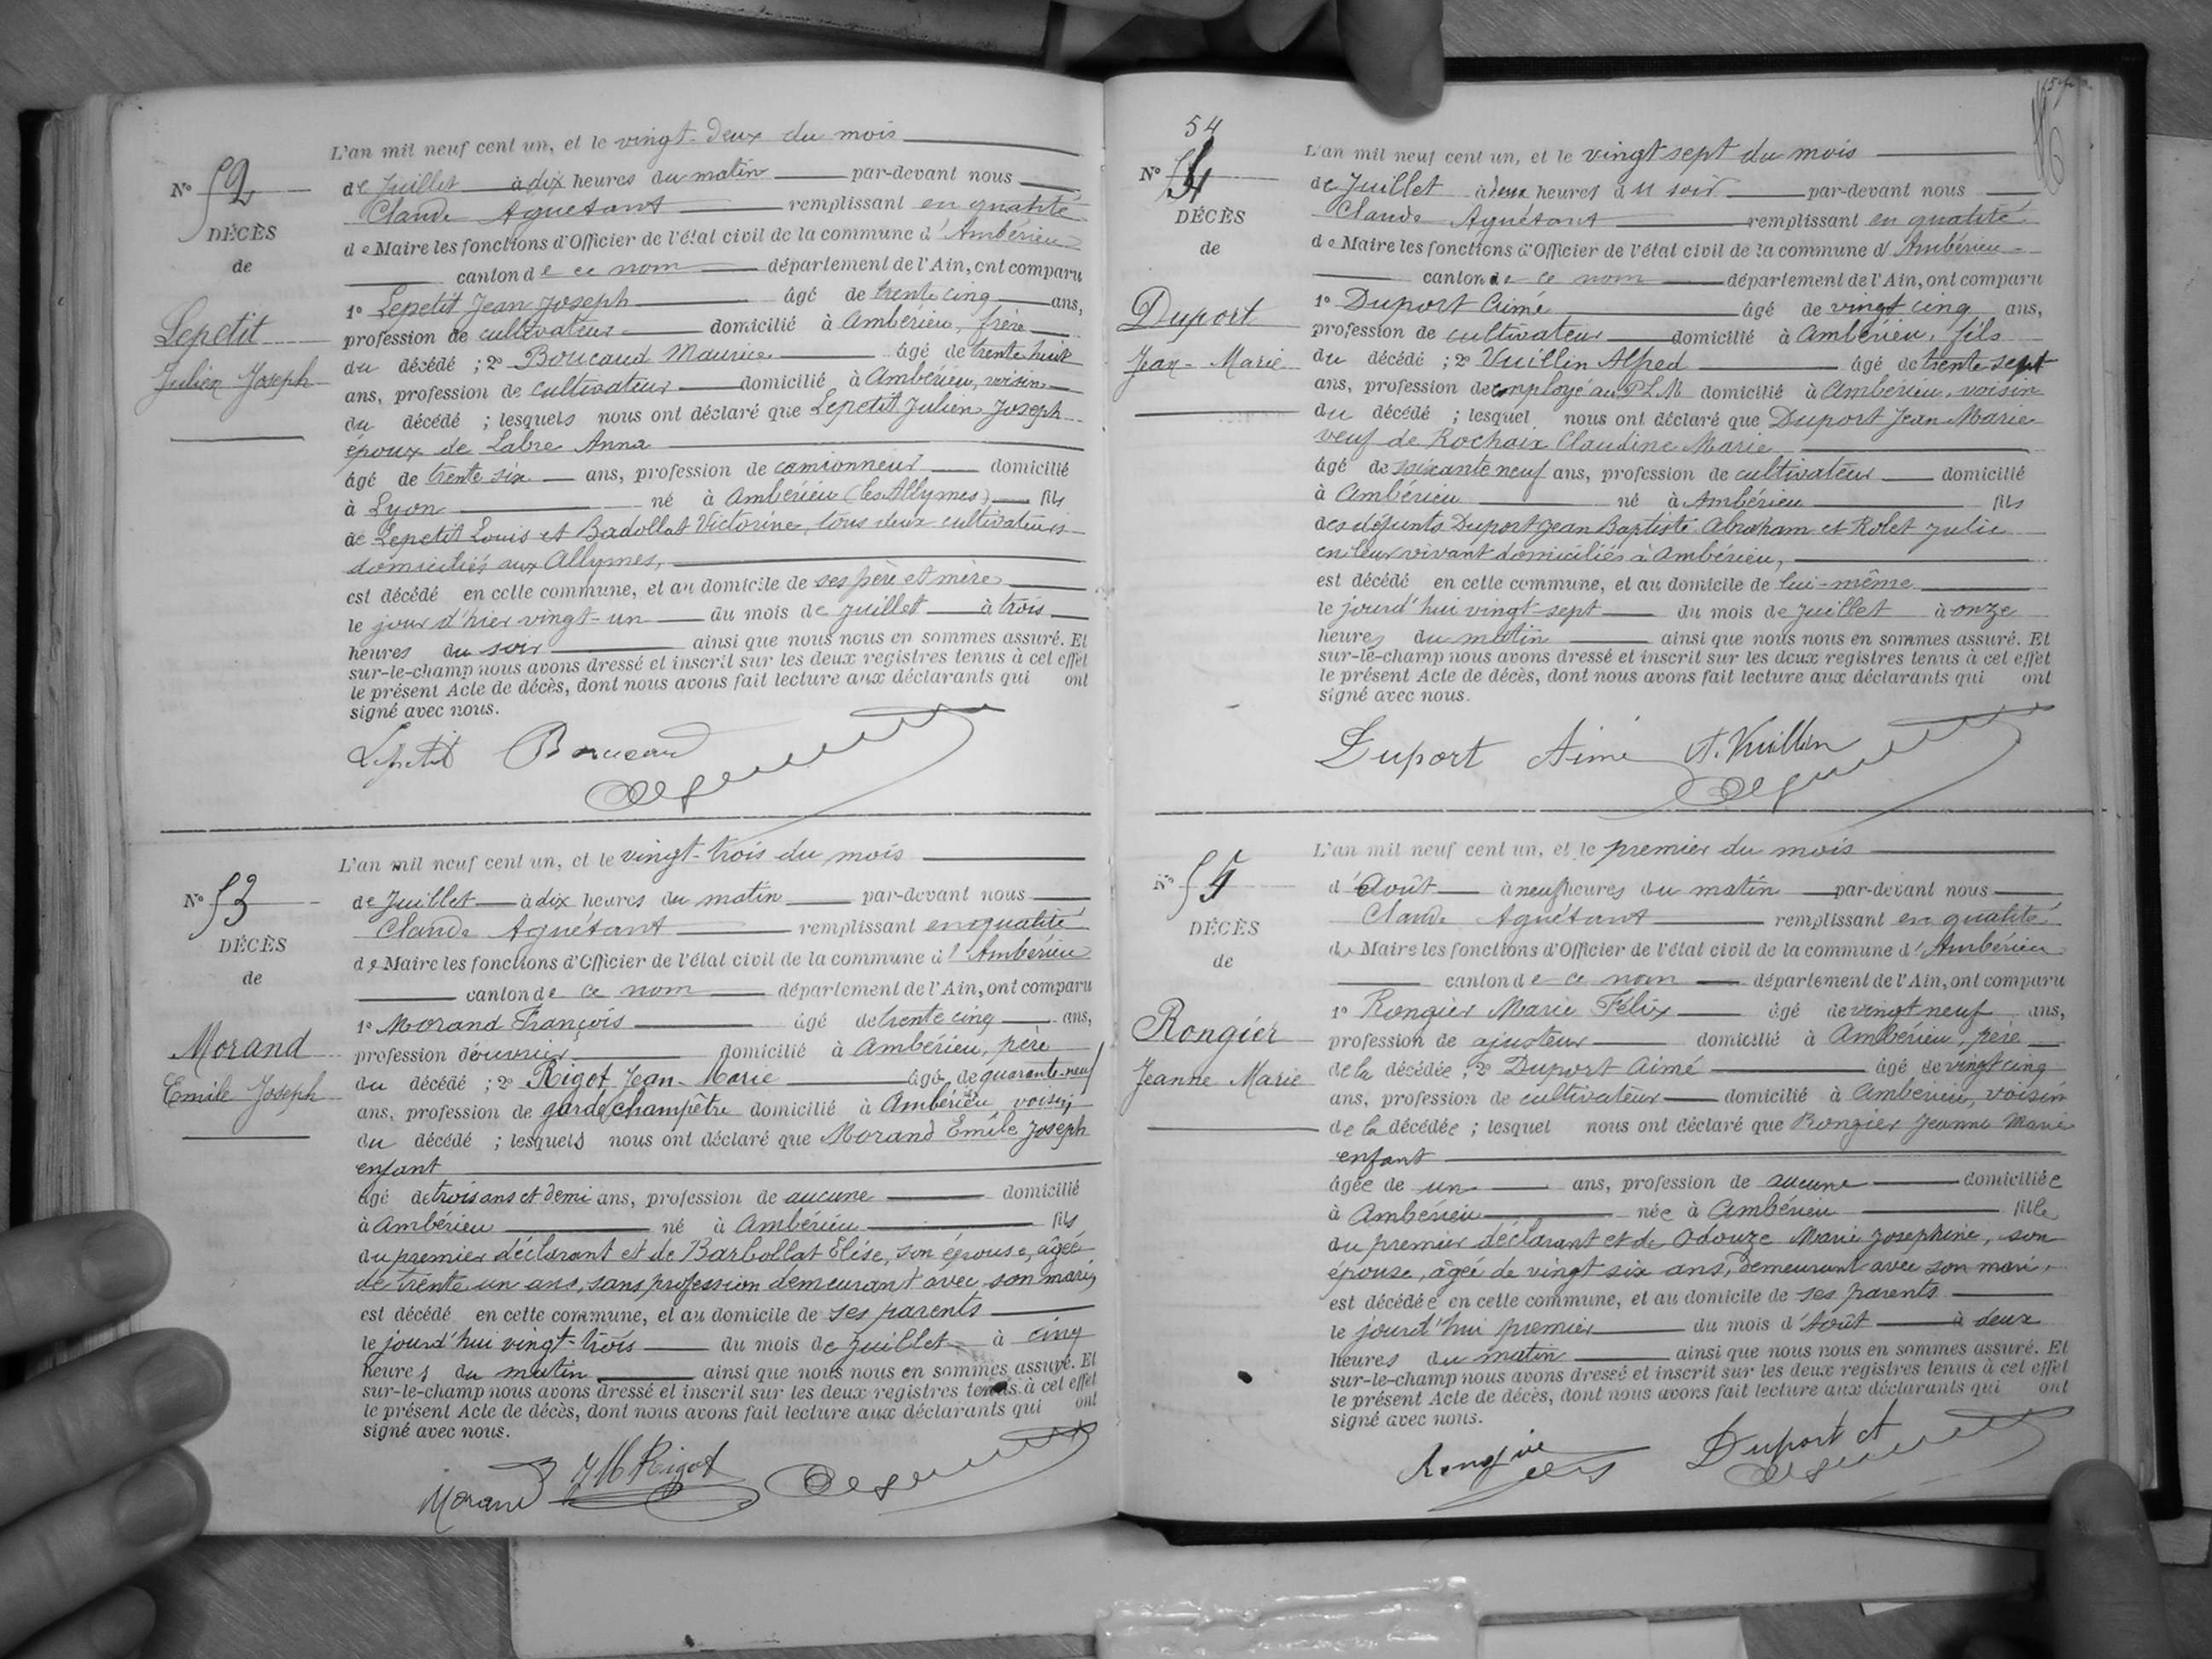 L'an mil neuf cent un, et le vingt-deux du mois
N° 52
de Juillet à dix heures du matin par-devant nous
Claude Aguétant remplissant en qualité
DÉCÈS
de Maire les fonctions d'Officier de l'état civil de la commune d'Ambérieu
de
canton de ce nom département de l'Ain, ont comparu
1° Lepetit Jean Joseph âgé de trente cinq ans,
Lepetit
profession de cultivateur domicilié à Ambérieu, frère
du décédé ; 2° Boucaud Maurice âgé de trente huit
Julien Joseph
ans, profession de cultivateur domicilié à Ambérieu, voisin
du décédé ; lesquels nous ont déclaré que Lepetit Julien Joseph
époux de Labre Anna
âgé de trente six ans, profession de camionneur domicilié
à Lyon né à Ambérieu (les Allymes) fils
de Lepetit Louis et Badollat Victorine, tous deux cultivateurs
domiciliés aux Allymes,
est décédé en cette commune, et au domicile de ses père et mère
le jour d'hier vingt-un du mois de Juillet à trois
heures du soir ainsi que nous nous en sommes assuré. Et
sur-le-champ nous avons dressé et inscrit sur les deux registres tenus à cet effet
le présent Acte de décès, dont nous avons fait lecture aux déclarants qui ont
signé avec nous.
Lepetit Boucaud
L'an mil neuf cent un, et le vingt-trois du mois
N° 53
de Juillet à dix heures du matin par-devant nous
Claude Aguétant remplissant en qualité
DÉCÈS
de Maire les fonctions d'Officier de l'état civil de la commune d'Ambérieu
de
canton de ce nom département de l'Ain, ont comparu
1° Morand François âgé de trente cinq ans,
Morand
profession d'ouvrier domicilié à Ambérieu, père
du décédé ; 2° Rigot Jean-Marie âgé de quarante-neuf
Emile Joseph
ans, profession de garde champêtre domicilié à Ambérieu voisin
du décédé ; lesquels nous ont déclaré que Morand Emile Joseph
enfant
âgé de trois ans et demi ans, profession de aucune domicilié
à Ambérieu né à Ambérieu fils
du premier déclarant et de Barbollat Elise, son épouse, âgée
de trente un ans, sans profession demeurant avec son mari,
est décédé en cette commune, et au domicile de ses parents
le jourd'hui vingt-trois du mois de Juillet à cinq
heures du matin ainsi que nous nous en sommes assuré. Et
sur-le-champ nous avons dressé et inscrit sur les deux registres tenus à cet effet
le présent Acte de décès, dont nous avons fait lecture aux déclarants qui ont
signé avec nous.
Morand JM Rigot
54
L'an mil neuf cent un, et le vingt sept du mois
N° 54
de Juillet à deux heures du soir par-devant nous
Claude Aguétant remplissant en qualité
DÉCÈS
de Maire les fonctions d'Officier de l'état civil de la commune d'Ambérieu
de
canton de ce nom département de l'Ain, ont comparu
1° Duport Aimé âgé de vingt cinq ans,
Duport
profession de cultivateur domicilié à Ambérieu, fils
du décédé ; 2° Vuillin Alfred âgé de trente sept
Jean-Marie
ans, profession de employé au P.L.M domicilié à Ambérieu, voisin
du décédé ; lesquel nous ont déclaré que Duport Jean Marie
veuf de Rochaix Claudine Marie
âgé de soixante neuf ans, profession de cultivateur domicilié
à Ambérieu né à Ambérieu fils
des défunts Duport Jean Baptiste Abraham et Rolet Julie
en leur vivant domiciliés à Ambérieu,
est décédé en cette commune, et au domicile de lui-même
le jourd'hui vingt-sept du mois de Juillet à onze
heures du matin ainsi que nous nous en sommes assuré. Et
sur-le-champ nous avons dressé et inscrit sur les deux registres tenus à cet effet
le présent Acte de décès, dont nous avons fait lecture aux déclarants qui ont
signé avec nous.
Duport Aimé A. Vuillin
L'an mil neuf cent un, et le premier du mois
N° 54
d'Août à neuf heures du matin par-devant nous
Claude Aguétant remplissant en qualité
DÉCÈS
de Maire les fonctions d'Officier de l'état civil de la commune d'Ambérieu
de
canton de ce nom département de l'Ain, ont comparu
1° Rongier Marie Félix âgé de vingt neuf ans,
Rongier
profession de ajusteur domicilié à Ambérieu, père
de la décédée ; 2° Duport Aimé âgé de vingt cinq
Jeanne Marie
ans, profession de cultivateur domicilié à Ambérieu, voisin
de la décédée ; lesquel nous ont déclaré que Rongier Jeanne Marie
enfant
âgée de un ans, profession de aucune domiciliée
à Ambérieu née à Ambérieu fille
du premier déclarant et de Odouze Marie Josephine, son
épouse, âgée de vingt six ans, demeurant avec son mari,
est décédée en cette commune, et au domicile de ses parents
le jourd'hui premier du mois d'Août à deux
heures du matin ainsi que nous nous en sommes assuré. Et
sur-le-champ nous avons dressé et inscrit sur les deux registres tenus à cet effet
le présent Acte de décès, dont nous avons fait lecture aux déclarants qui ont
signé avec nous.
Rongier Duport A